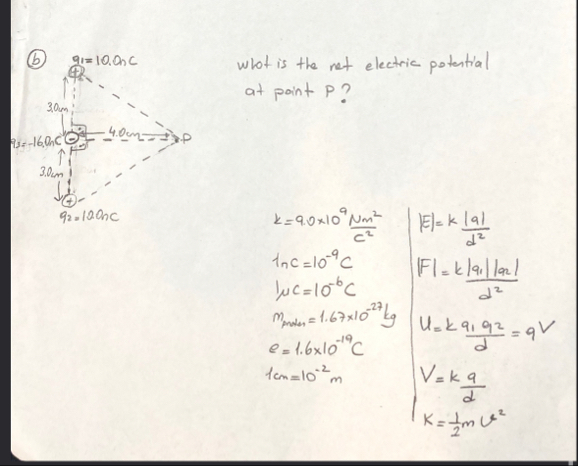 (b)
q1=10.0nC
3.0cm
4.0cm
P
q3=-16.0nC
3.0cm
q2=10.0nC
what is the net electric potential
at point P?
k=9.0x10⁹ Nm²/C²
1nC=10⁻⁹C
1μC=10⁻⁶C
m_proton=1.67x10⁻²⁷kg
e=1.6x10⁻¹⁹C
1cm=10⁻²m
|E|=k |q|/d²
|F|=k |q₁||q₂|/d²
U=k q₁q₂/d = qV
V=k q/d
K=½mv²